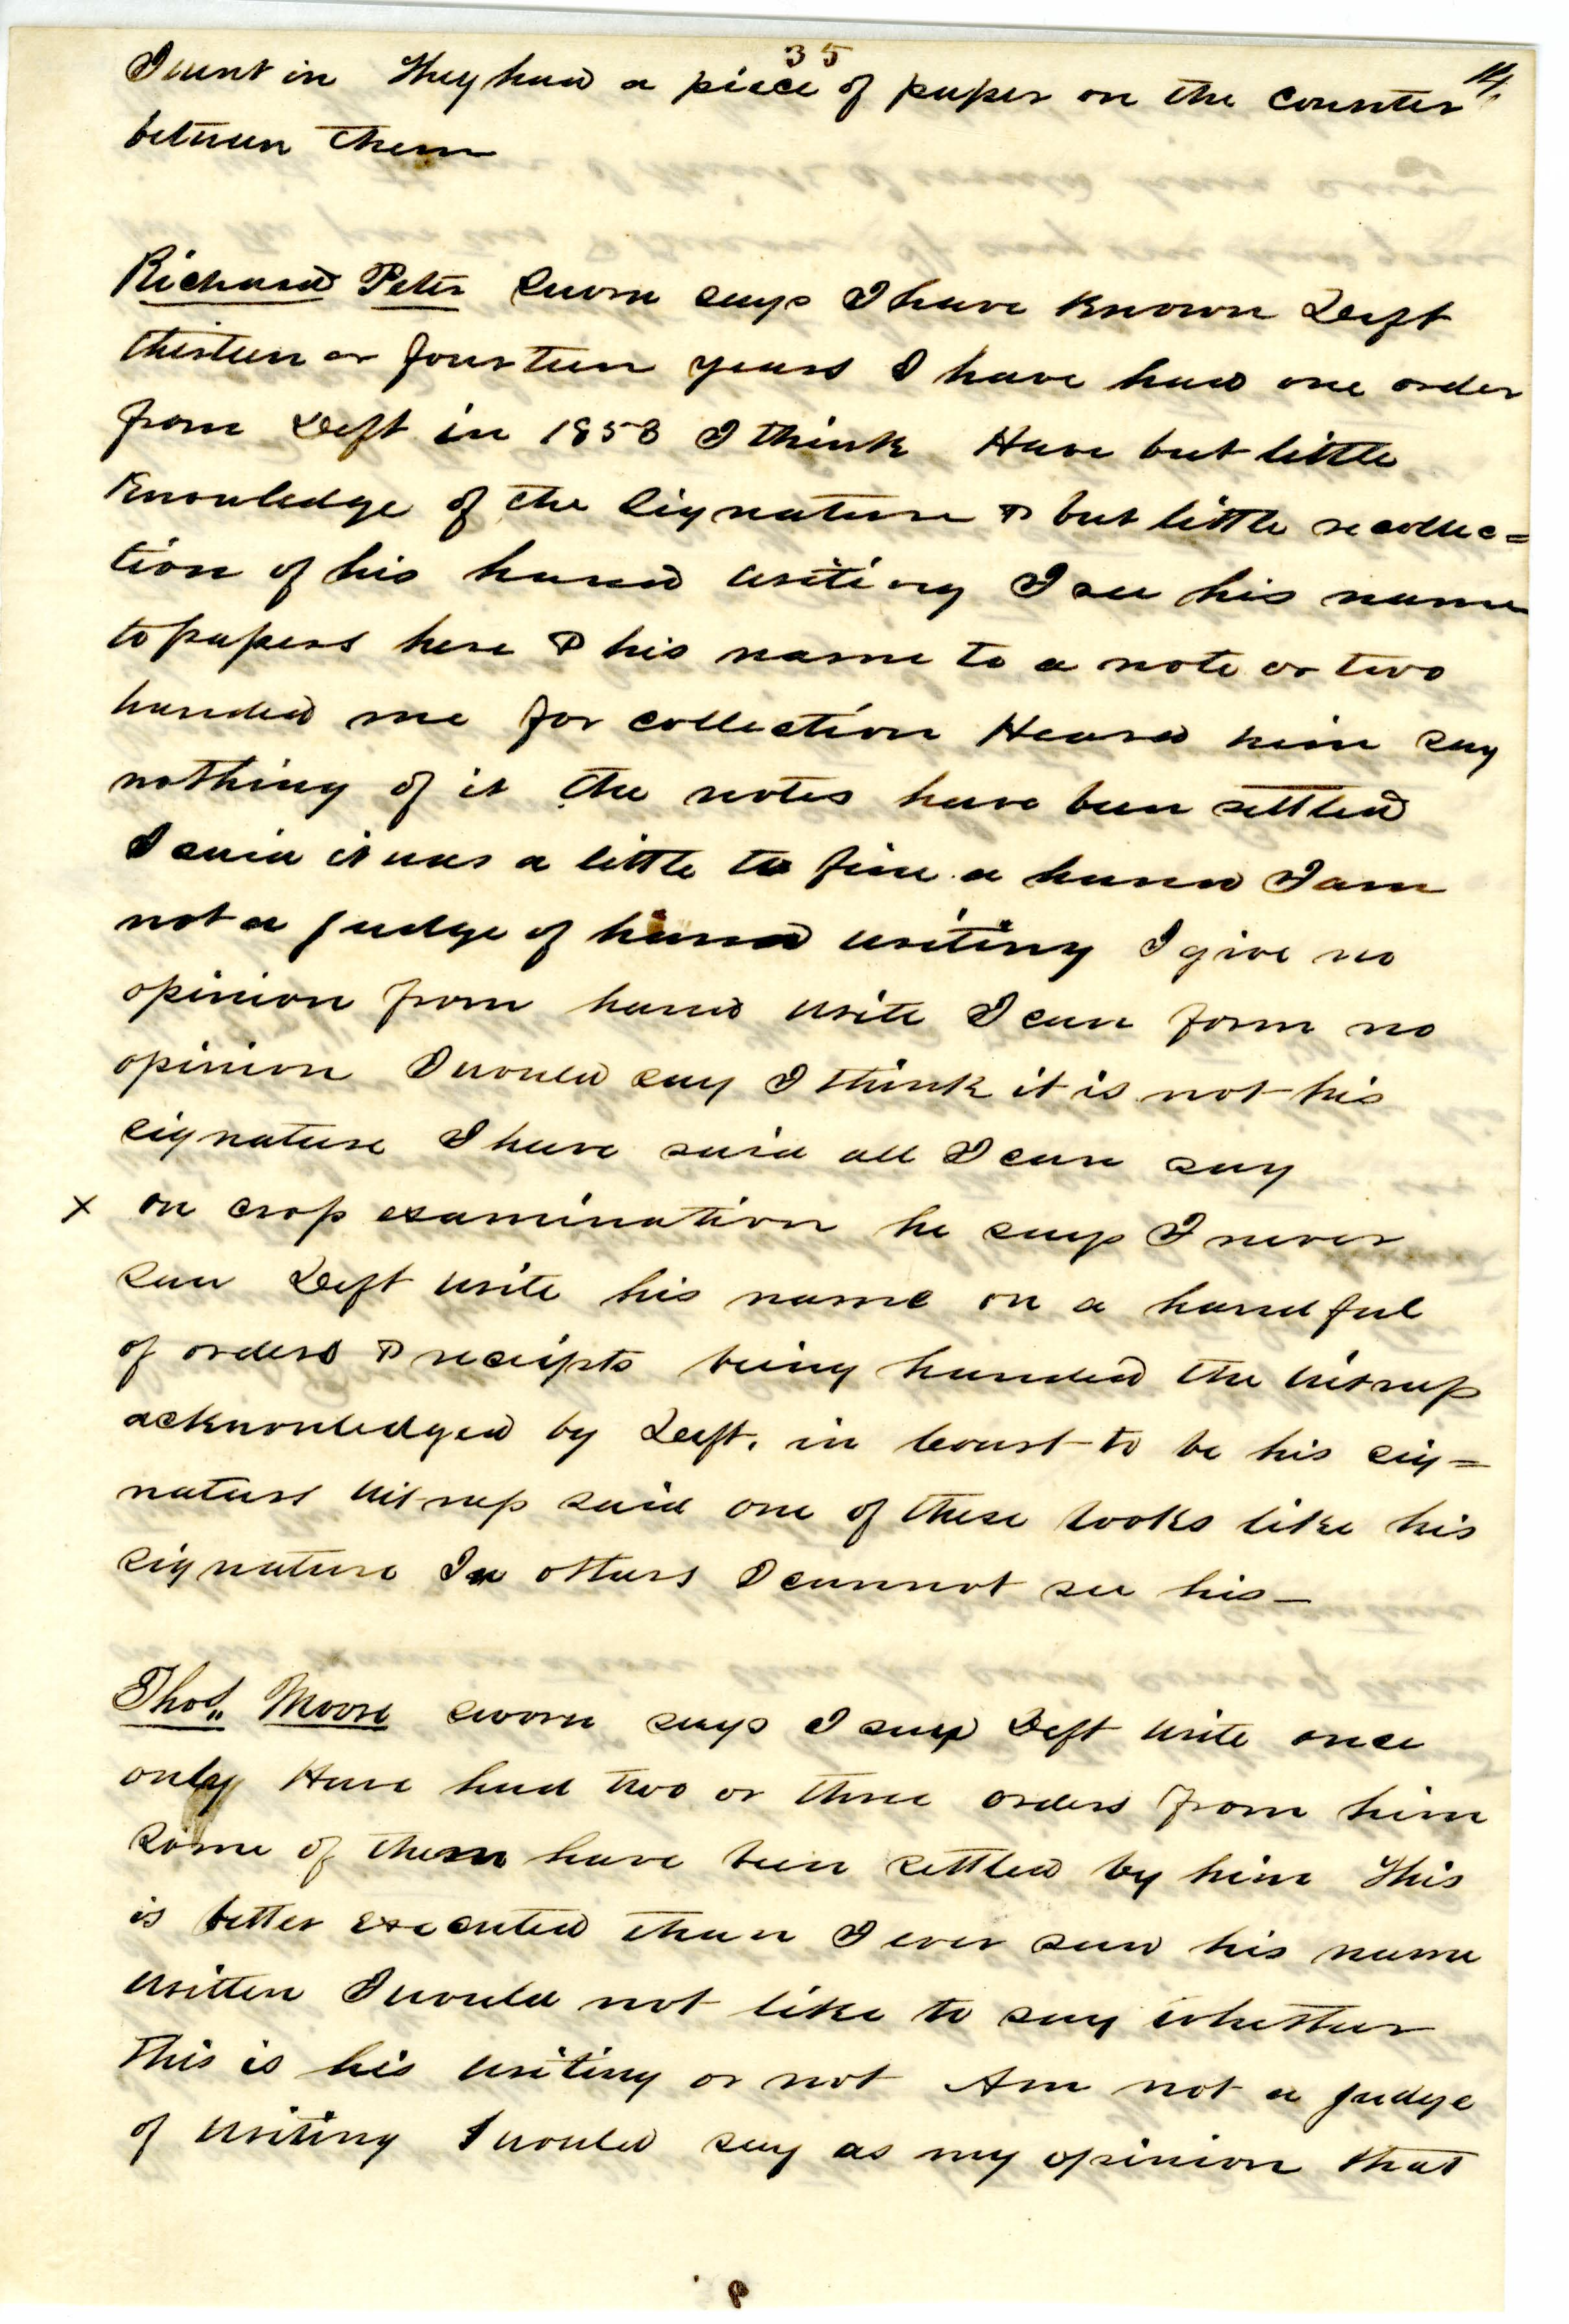 35
14
I went in They had a piece of paper on the counter
between them
Richard Peter Sworn says I have known Deft
thirteen or fourteen years I have had one order
from Deft in 1858 I think Have but little
Knowledge of the Signature & but little recollec=
tion of his hand writing I see his name
to papers here & his name to a note or two
handed me for collection Heard him say
nothing of it the notes have been settled
I said it was a little to fine a hand I am
not a judge of hand writing I give no
opinion from hand write I can form no
opinion I would say I think it is not his
signature I have said all I can say
x on cross examination he says I never
saw Deft write his name on a handful
of orders & receipts being handed the witness
acknowledged by Deft. in Court to be his sig=
nature witness said one of these looks like his
signature In others I cannot see his—
Thos. Moore sworn says I saw Deft write once
only Have had two or three orders from him
some of them have been settled by him This
is better executed than I ever saw his name
written I would not like to say whether
This is his writing or not Am not a judge
of writing I would say as my opinion that